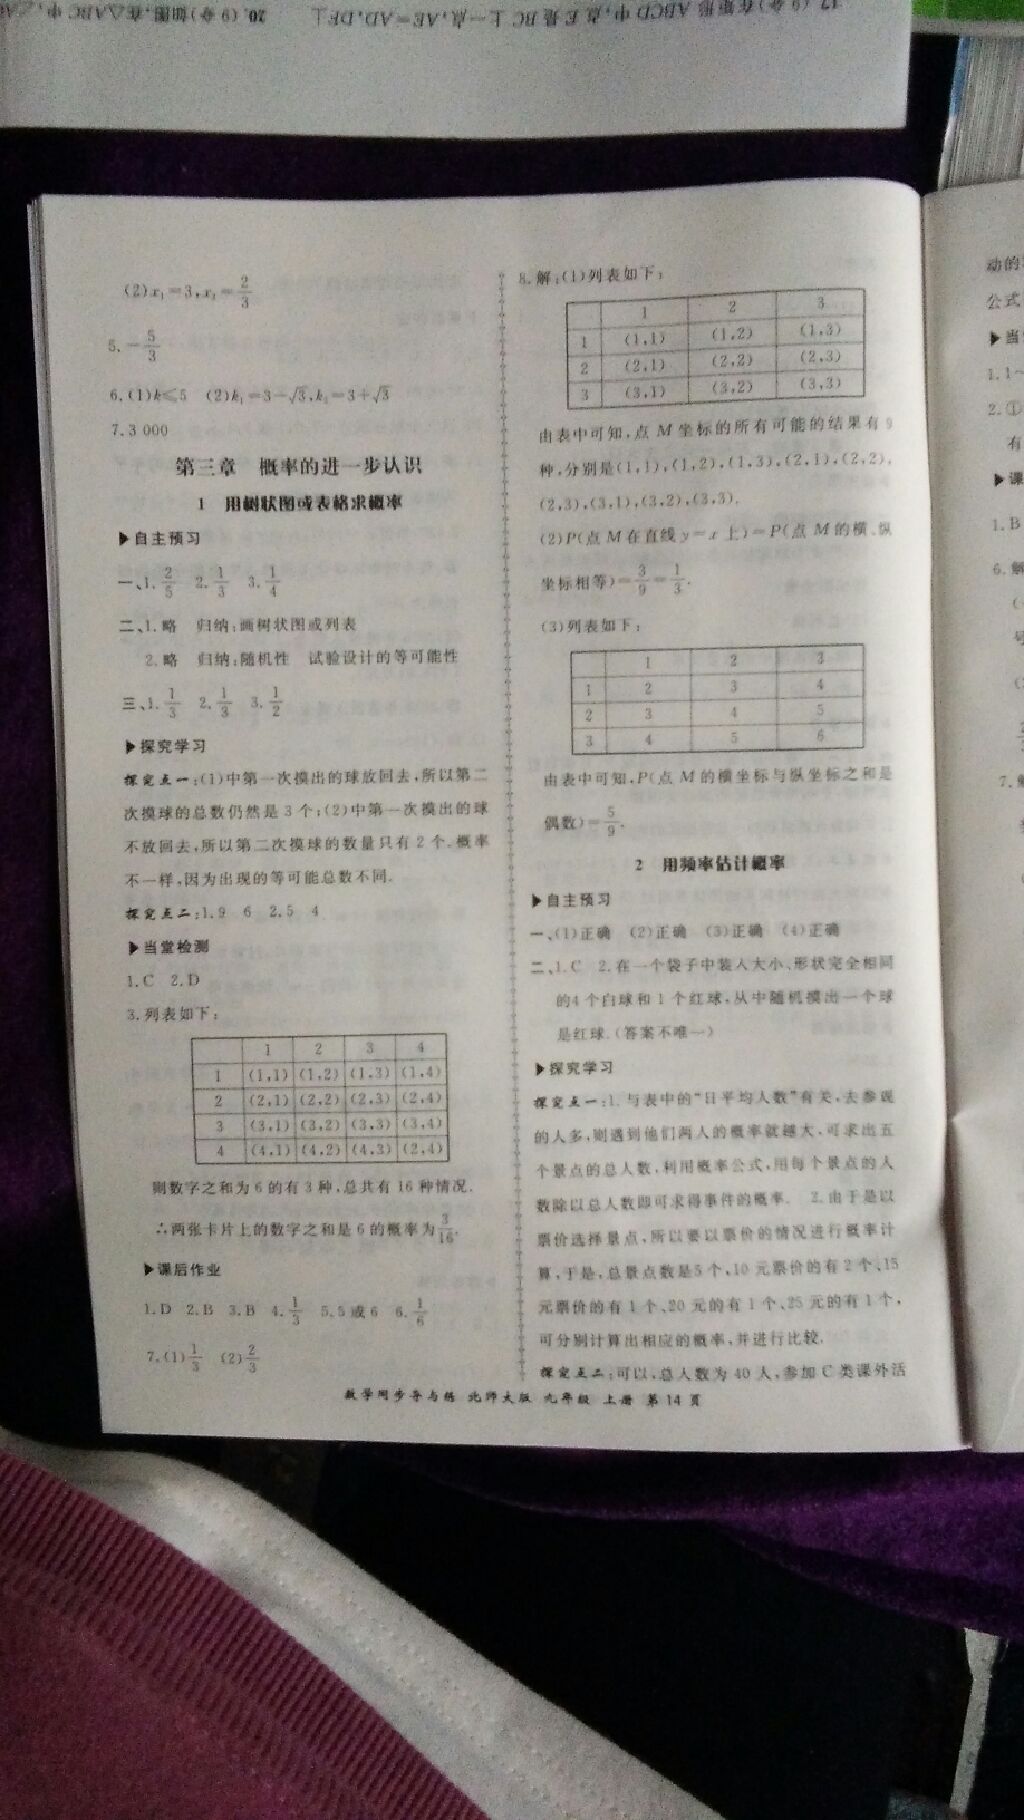 17.(9分)在矩形ABCD中,点E是BC上一点,AE=AD,DF⊥
20.(9分)如图,在△ABC中,
(2)x₁=3,x₂=2/3
5.-5/3
6.(1)k≤5 (2)k₁=3-√3,k₂=3+√3
7.3 000
第三章 概率的进一步认识
1 用树状图或表格求概率
▶自主预习
一、1.2/5 2.1/3 3.1/4
二、1.略 归纳:画树状图或列表
2.略 归纳:随机性 试验设计的等可能性
三、1.1/3 2.1/3 3.1/2
▶探究学习
探究点一:(1)中第一次摸出的球放回去,所以第二
次摸球的总数仍然是3个;(2)中第一次摸出的球
不放回去,所以第二次摸球的数量只有2个.概率
不一样,因为出现的等可能总数不同.
探究点二:1.9 6 2.5 4
▶当堂检测
1.C 2.D
3.列表如下:
1 2 3 4
1 (1,1) (1,2) (1,3) (1,4)
2 (2,1) (2,2) (2,3) (2,4)
3 (3,1) (3,2) (3,3) (3,4)
4 (4,1) (4,2) (4,3) (2,4)
则数字之和为6的有3种,总共有16种情况.
∴两张卡片上的数字之和是6的概率为3/16.
▶课后作业
1.D 2.B 3.B 4.1/3 5.5或6 6.1/6
7.(1)1/3 (2)2/3
8.解:(1)列表如下:
1 2 3
1 (1,1) (1,2) (1,3)
2 (2,1) (2,2) (2,3)
3 (3,1) (3,2) (3,3)
由表中可知,点M坐标的所有可能的结果有9
种,分别是(1,1),(1,2),(1,3),(2,1),(2,2),
(2,3),(3,1),(3,2),(3,3).
(2)P(点M在直线y=x上)=P(点M的横、纵
坐标相等)=3/9=1/3.
(3)列表如下:
1 2 3
1 2 3 4
2 3 4 5
3 4 5 6
由表中可知,P(点M的横坐标与纵坐标之和是
偶数)=5/9.
2 用频率估计概率
▶自主预习
一、(1)正确 (2)正确 (3)正确 (4)正确
二、1.C 2.在一个袋子中装入大小、形状完全相同
的4个白球和1个红球,从中随机摸出一个球
是红球.(答案不唯一)
▶探究学习
探究点一:1.与表中的“日平均人数”有关,去参观
的人多,则遇到他们两人的概率就越大.可求出五
个景点的总人数,利用概率公式,用每个景点的人
数除以总人数即可求得事件的概率. 2.由于是以
票价选择景点,所以要以票价的情况进行概率计
算,于是,总景点数是5个,10元票价的有2个、15
元票价的有1个、20元的有1个、25元的有1个,
可分别计算出相应的概率,并进行比较.
探究点二:可以,总人数为40人,参加C类课外活
数学同步导与练 北师大版 九年级 上册 第14页
动的
公式
▶当
1.1~
2.①
有
▶课
1.B
6.解
7.解